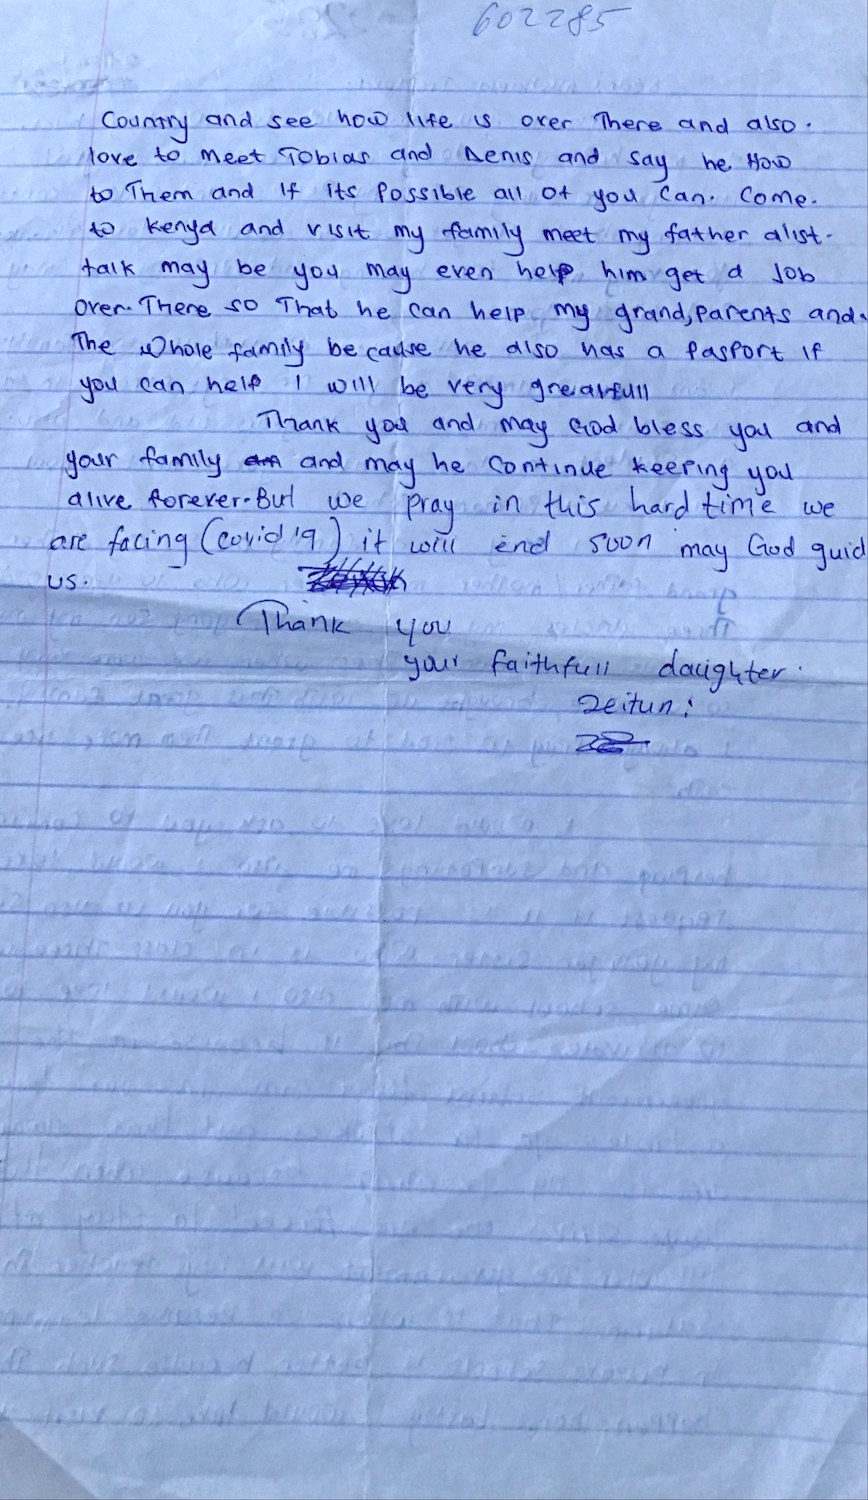 602285
Country and see how life is over There and also.
love to meet Tobias and Denis and say he How
to Them and If its Possible all of you Can. Come.
to Kenya and visit my family meet my father alist.
talk may be you may even help him get a Job
over. There so That he can help my grand,parents and.
The whole family because he also has a Pasport If
you can help I will be very greatfull
Thank you and may God bless you and
your family and may he Continue keeping you
alive forever. But we pray in this hard time we
are facing (covid'19) it will end soon may God guid
us.
Thank you
your faithfull daughter.
Zeitun: